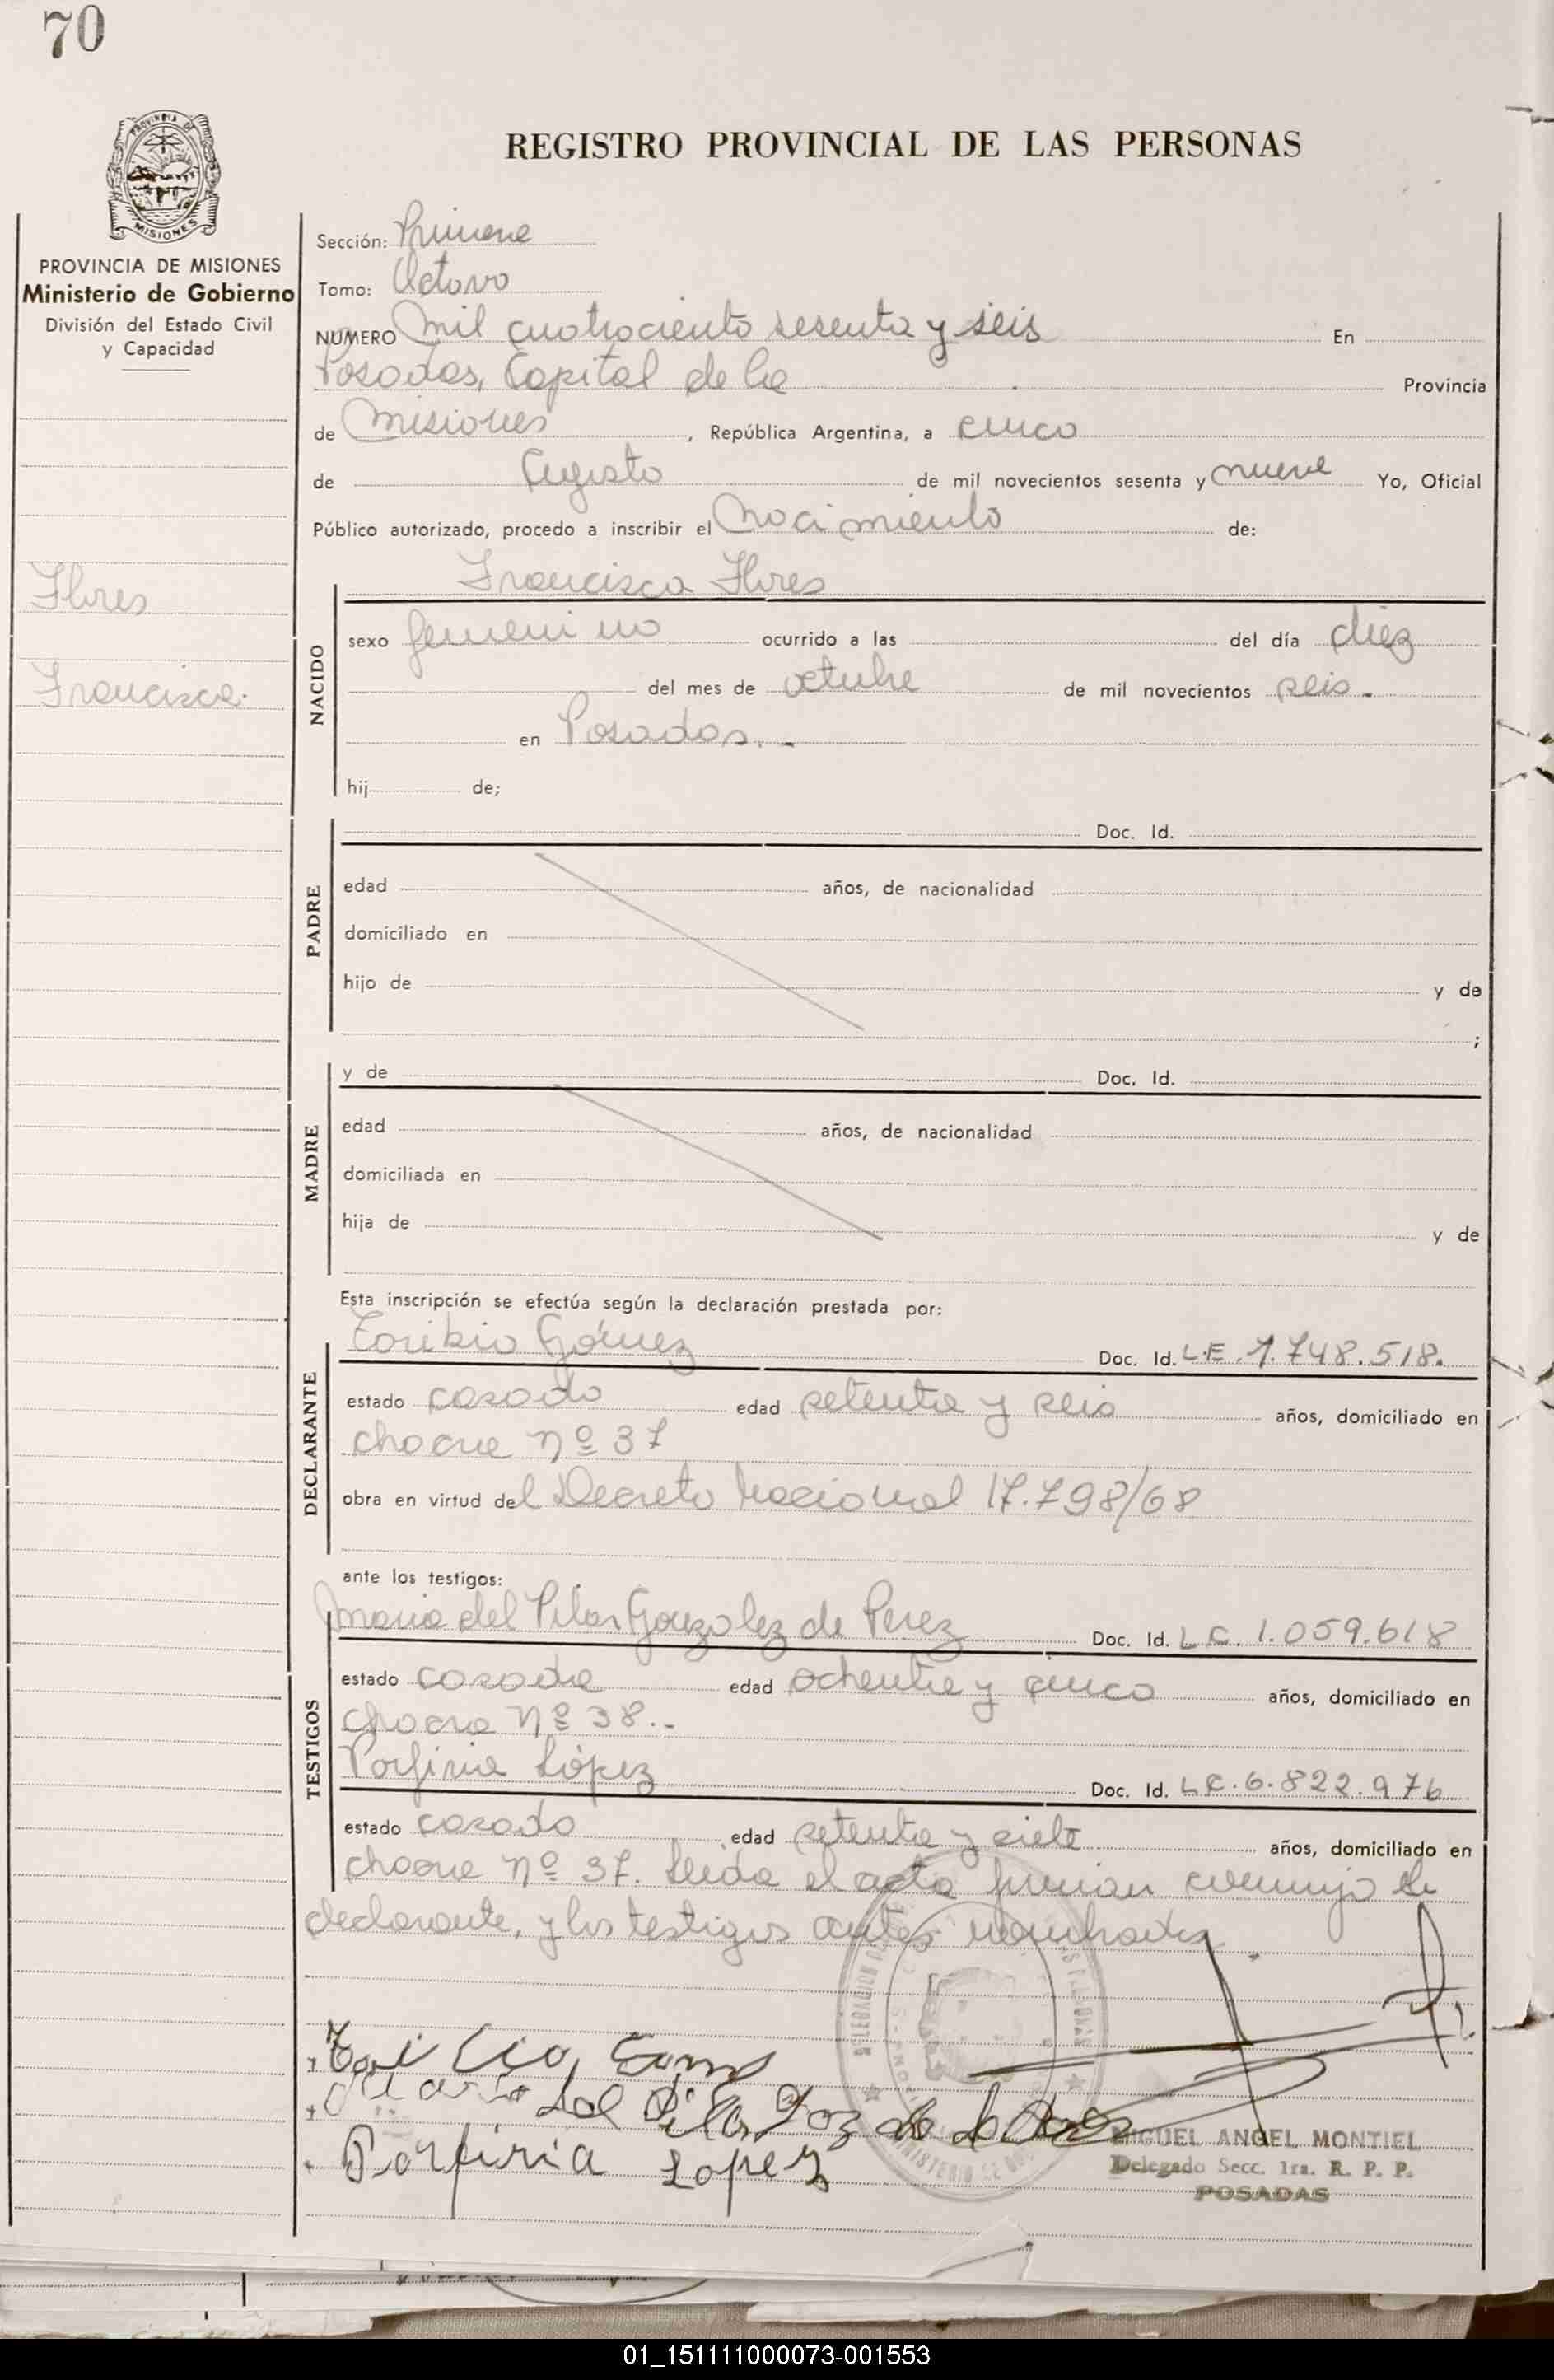 70
PROVINCIA DE MISIONES
MISIONES
PROVINCIA DE MISIONES
Ministerio de Gobierno
División del Estado Civil
y Capacidad
Flores
Francisca.
REGISTRO PROVINCIAL DE LAS PERSONAS
Sección: Primera
Tomo: Octavo
NUMERO Mil cuatrociento sesenta y seis En
Posadas, Capital de la Provincia
de Misiones, República Argentina, a cinco
de Agosto de mil novecientos sesenta y nueve Yo, Oficial
Público autorizado, procedo a inscribir el Nacimiento de:
Francisca Flores
NACIDO
sexo femenino ocurrido a las del día diez
del mes de octubre de mil novecientos seis.-
en Posadas.-
hij de;
PADRE
Doc. Id.
edad años, de nacionalidad
domiciliado en
hijo de y de
;
MADRE
y de Doc. Id.
edad años, de nacionalidad
domiciliada en
hija de y de
Esta inscripción se efectúa según la declaración prestada por:
DECLARANTE
Toribio Gómez Doc. Id. L.E. 1.748.518.
estado casado edad setenta y seis años, domiciliado en
chacra nº 37
obra en virtud del Decreto Nacional 17.798/68
ante los testigos:
TESTIGOS
Maria del Pilar Gonzalez de Perez Doc. Id. L.C. 1.059.618
estado casada edad ochenta y cinco años, domiciliado en
chacra Nº 38.-
Porfiria López Doc. Id. L.C. 6.822.976
estado casado edad setenta y siete años, domiciliado en
chacra nº 37. Leida el acta firman conmigo la
declarante, y los testigos antes nombrados.
Maria del Pilar
Porfiria Lopez
MIGUEL ANGEL MONTIEL
Delegado Secc. 1ra. R. P. P.
POSADAS
01_151111000073-001553